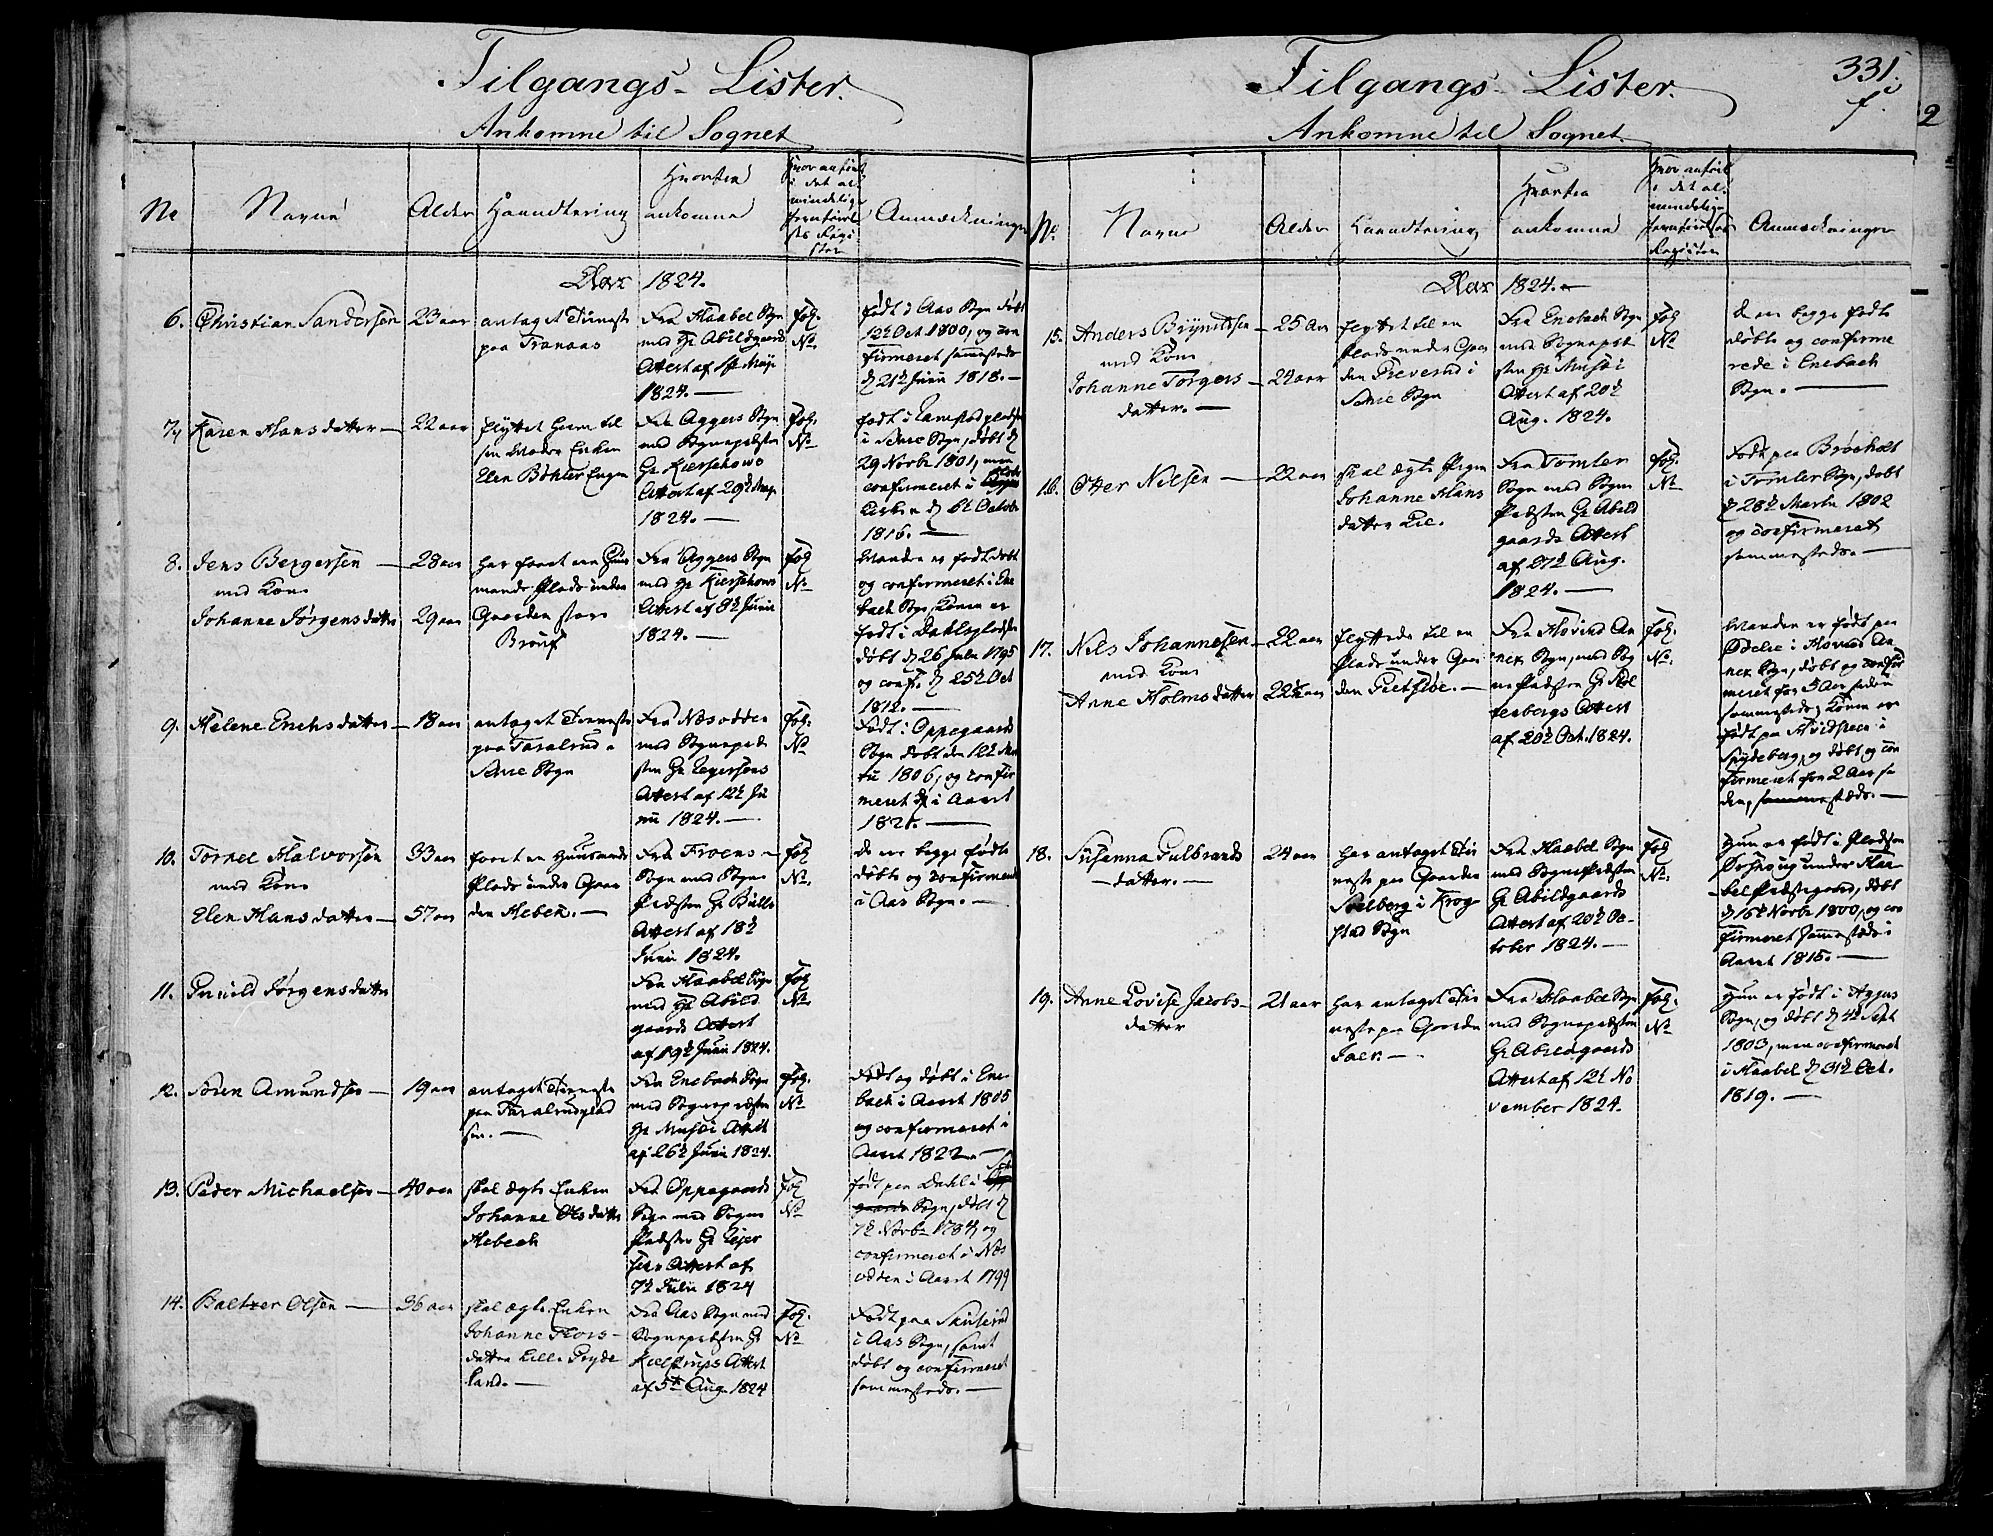 Tilgangs-Lister.
Ankomne til Sognet
No
Navne
Alder
Haandtering
Hvorfra
ankomne
Hvor anført
i det al-
mindelige
Jevnførel-
ses Regi-
ster
Anmærkninger
Aar 1824.
6. Christian Sandersen 23 aar
antaget Tieneste
paa Tranaas
Fra Haabøl Sogn
med Hr Abildgaards
Attest af
1824.
fol.
No.
født i Aas Sogn født
12te Oct 1800, og con
firmeret sammesteds
d 21de Junii 1818.
7. Karen Hansdatter 22 aar
flyttet hiem til
sin Moder Enken
Elen
Fra Aggers Sogn
med Sognepræsten
Hr Kierschows
Attest af 29de Maji
1824.
fol.
No
født i
i Sogn, døbt d
29 Novbr 1801, men
confirmeret i
Kirken d 6te October
1816.
8. Jens Bergersen 28 aar
med Kone
Johanne Jørgensdatter 29 aar
har faaet en Huus
mands Plads under
Gaarden store
Fra Aggers Sogn
med Hr Kierschows
Attest af 8de Junii
1824.
fol
No.
Manden er født døbt
og confirmeret i Ene
bach Sogn, Konen er
født i Dahlspladsen
døbt d 26 Julii 1795
og conf. d 25de Oct
1812.
9. Helene Erichsdatter 18 aar
antaget Tieneste
paa Taralrud i
Sogn
Fra Næsodden
med Sognepræ
sten Hr Lejersens
Attest af 12te Ju
nii 1824.
fol.
No
Født i Oppegaards
Sogn døbt den 12te
1806, og confir
meret i Aaret
1821.
10. Tornel Halvorsen 33 aar
med Kone
Elen Hansdatter 57 aar
faaet en Huusmands
Plads under Gaar
den Hebek.
Fra Froens
Sogn med Sogne
Præsten Hr Bulls
Attest af 18de
Junii 1824.
fol
No.
de ere begge fødte
døbte og confirmerede
i Aas Sogn.
11. Gunild Jørgensdatter
Fra Haabøl Sogn
med Hr Abild
gaards Attest
af 19de Junii 1824.
fol
No.
12. Søren Amundsen 19 aar
antaget Tieneste
paa Taralrudplad
sen.
Fra Enebach Sogn
med Sognepræsten
Hr Musæi Attest
af 26de Junii 1824.
fol.
No
Født og døbt i Ene
bach i Aaret 1805
og confirmeret i
Aaret 1822.
13. Peder Michaelsen 40 aar
skal ægte Enken
Johanne Olsdatter
Hebech
Fra Oppegaards
Sogn med Sogne
Præsten Hr Lejer
sens Attest af
7de Julii 1824
fol
No
født paa Dahl i
gaards Sogn, døbt d
7de Novbr 1784, og
confirmeret i Næs
odden i Aaret 1799
14. Baltzer Olsen 36 aar
skal ægte Enken
Johanne Thors-
datter Lille Gryde
land.
Fra Aas Sogn med
Sognepræsten Hr
Kielstrups Attest
af 5te Aug. 1824
fol.
No
Født paa
i Aas Sogn, samt
døbt og confirmeret
sammesteds.
Tilgangs-Lister.
331.
f.
2
Ankomne til Sognet
No.
Navne
Alder
Haandtering
Hvorfra
ankomne
Hvor anført
i det al-
mindelige
Jevnførelses
Register
Anmærkninger
Aar 1824.
15. Anders Brynildsen 25 Aar
med Kone
Johanne Torgers- 24 aar
datter.
flyttet til en
Plads under Gaar
den Greverud i
Sogn
Fra Enebach Sogn
med Sognepræ
sten Hr Musæi
Attest af 20de
Aug. 1824.
fol
No
de ere begge fødte
døbte og confirme
rede i Enebach
Sogn.
16. Otter Nilsen 22 aar
skal ægte Pigen
Johanne Hans
datter Lie.
Fra Tomter
Sogn med Sogne
Præsten Hr Abild
gaards Attest
af 27de Aug.
1824.
fol.
No
Født paa Brøeholt
i Tomter Sogn, døbt
d 28de Martii 1802
og confirmeret
sammesteds.
17. Nils Johannesen 22 aar
med Kone
Anne Holmsdatter 22½ aar
flyttede til en
Plads under Gaar
den
Fra Hovind An
nex Sogn, med Sog
nePræsten Hr
Attest
af 20de Oct. 1824.
fol.
No.
Manden er født paa
Ødelie i Hovind An
nex Sogn, døbt og confir
meret for 5 Aar siden
sammesteds, Konen er
født paa i
Spydeberg, og døbt og con
firmeret for 2 Aar si
den, sammesteds.
18. Susanna Gulbrands 24 aar
datter.
har antaget Tie
neste paa Gaarden
Solberg i Krog
stad Sogn
Fra Haabøl Sogn
med SognePræsten
Hr Abildgaards
Attest af 20de Oc-
tober 1824.
fol
No.
Hun er født i Pladsen
under Haa-
bøl Præstegaard, døbt
d 16de Novbr 1800, og con
firmeret sammesteds i
Aaret 1815.
19. Anne Lovise Jacobs- 21 aar
datter
har antaget Tie
neste paa Gaarden
Fra Haabøl Sogn
med Sognepræsten
Hr Abildgaards
Attest af 12te No
vember 1824.
fol.
No
Hun er født i Aggers
Sogn, og døbt d 4de Sept
1803, men confirmeret
i Haabøl d 31te Oct.
1819.